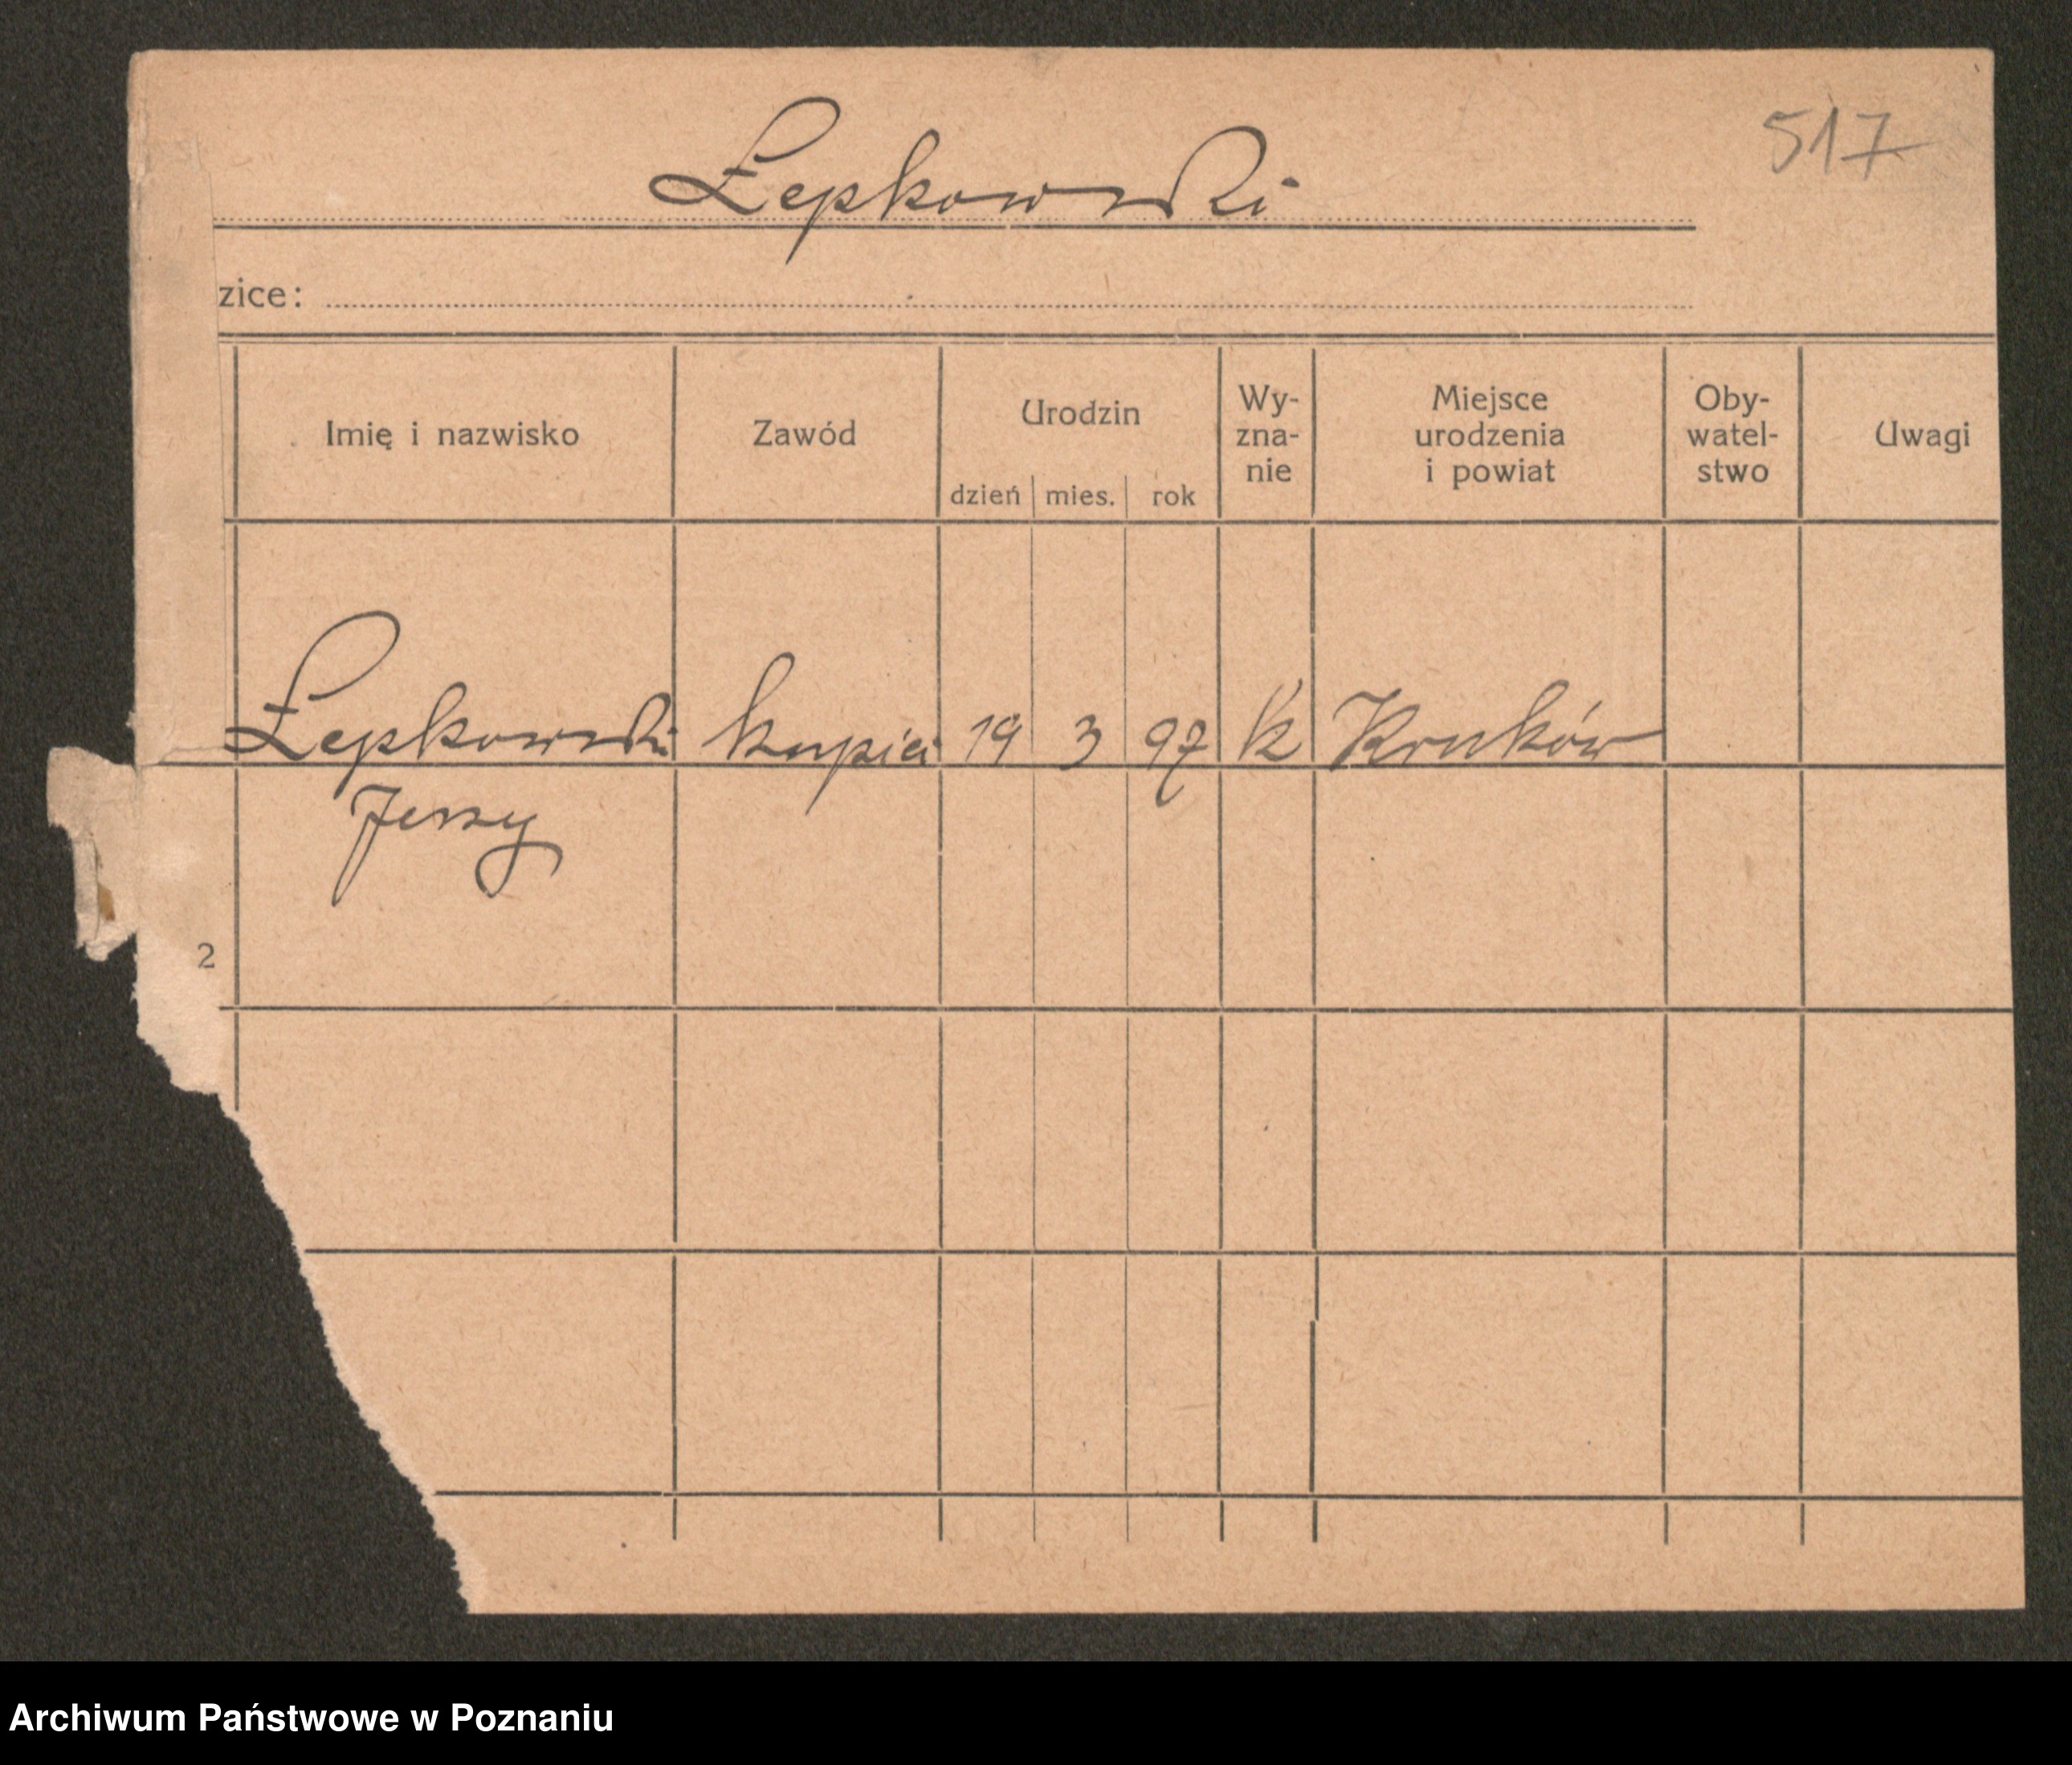 517
Łepkowski
zice:
Imię i nazwisko
Zawód
Urodzin
dzień mies. rok
Wy-
zna-
nie
Miejsce
urodzenia
i powiat
Oby-
watel-
stwo
Uwagi
Łepkowski kupiec 19 3 97 k Kraków
Jerzy
2
Archiwum Państwowe w Poznaniu